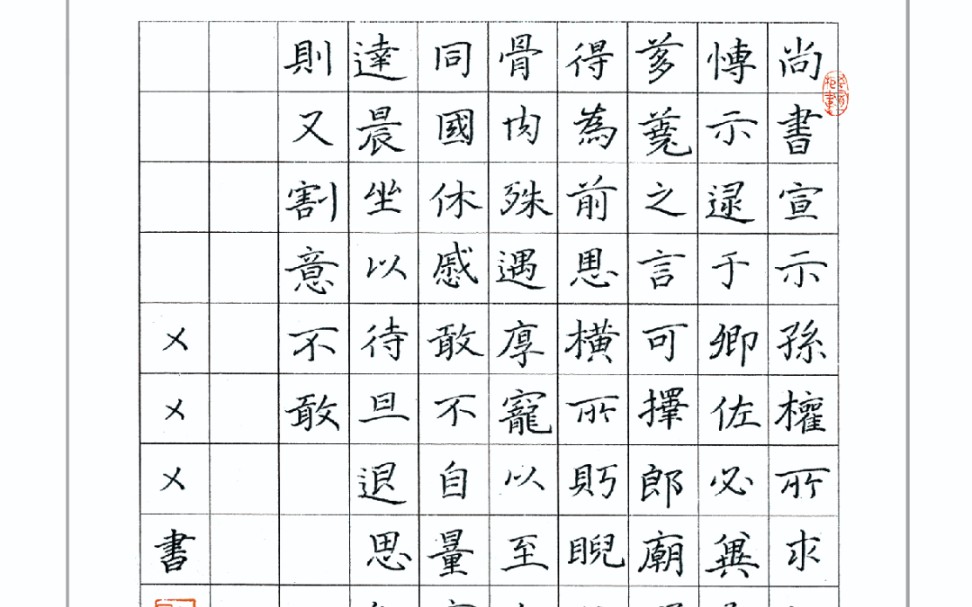 尚書宣示孫權所求
愽示逮于卿佐必冀
芻蕘之言可擇郎廟
得為前恩橫所眄睨
骨肉殊遇厚寵以至
同國休慼敢不自量
達晨坐以待旦退思
則又割意不敢
×××書